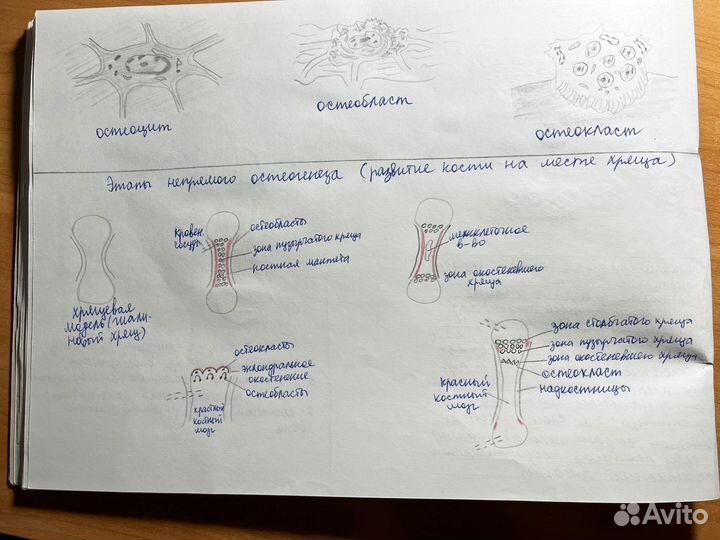 остеоцит
остеобласт
остеокласт
Этапы непрямого остеогенеза (развитие кости на месте хряща)
хрящевая
модель (гиали-
новый хрящ)
кровен.
сосуды
остеобласты
зона пузырчатого хряща
костная манжета
межклеточное
в-во
зона окостеневшего
хряща
остеокласты
энхондральное
окостенение
остеобласты
красный
костный
мозг
зона столбчатого хряща
зона пузырчатого хряща
зона окостеневшего хряща
остеокласт
надкостницы
красный
костный
мозг
Avito